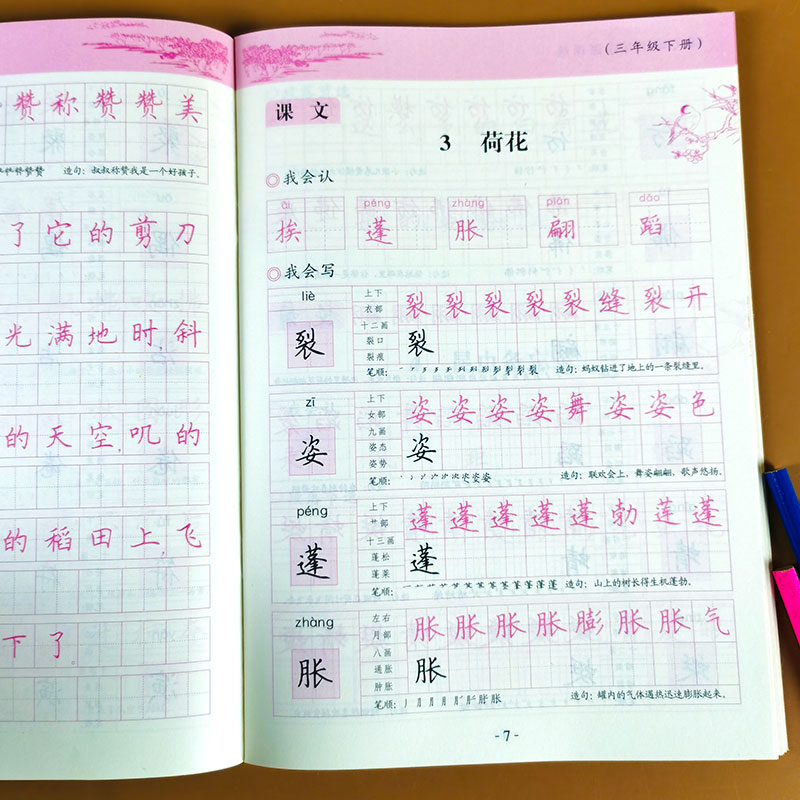 赞称赞赞美
造句：叔叔称赞我是一个好孩子。
了它的剪刀
光满地时，斜
的天空，叽的
的稻田上，飞
下了。
（三年级下册）
课文
3 荷花
我会认
āi péng zhàng piān dǎo
挨 蓬 胀 翩 蹈
我会写
liè
裂
上下
衣部
十二画
裂口
裂痕
裂裂裂裂裂缝裂开
裂
笔顺：
造句：蚂蚁钻进了地上的一条裂缝里。
zī
姿
上下
女部
九画
姿态
姿势
姿姿姿姿舞姿姿色
姿
笔顺：
造句：联欢会上，舞姿翩翩，歌声悠扬。
péng
蓬
上下
艹部
十三画
蓬松
蓬莱
蓬蓬蓬蓬蓬勃莲蓬
蓬
笔顺：
造句：山上的树长得生机蓬勃。
zhàng
胀
左右
月部
八画
通胀
肿胀
胀胀胀胀膨胀胀气
胀
笔顺：
造句：罐内的气体遇热迅速膨胀起来。
-7-